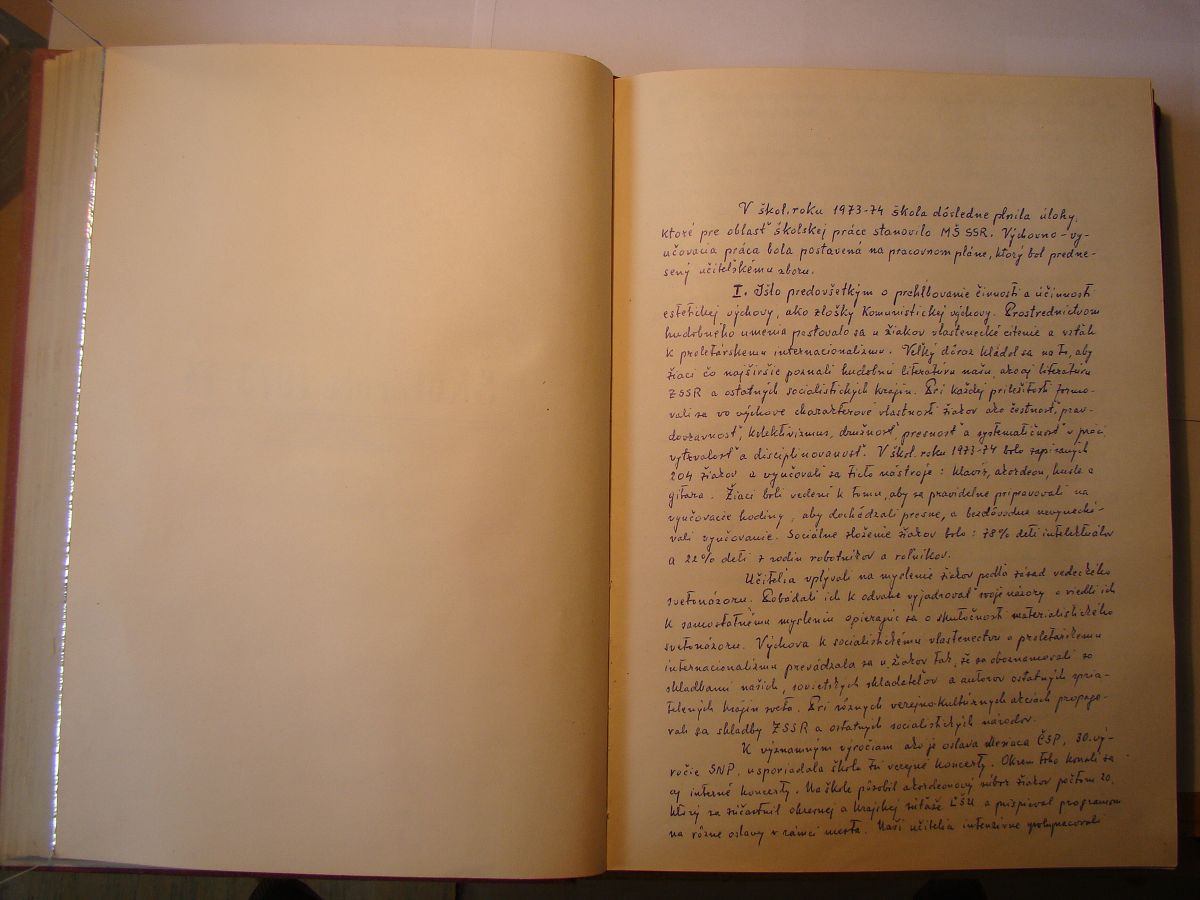 V škol. roku 1973-74 škola dôsledne plnila úlohy,
ktoré pre oblasť školskej práce stanovilo MŠ SSR. Výchovno-vy-
učovacia práca bola postavená na pracovnom pláne, ktorý bol predne-
sený učiteľskému zboru.
I. Išlo predovšetkým o prehlbovanie činnosti a účinnosti
estetickej výchovy, ako zložky komunistickej výchovy. Prostredníctvom
hudobného umenia pestovalo sa u žiakov vlastenecké cítenie a vzťah
k proletárskemu internacionalizmu. Veľký dôraz kládol sa na to, aby
žiaci čo najširšie poznali hudobnú literatúru našu, ako aj literatúru
ZSSR a ostatných socialistických krajín. Pri každej príležitosti formo-
vali sa vo výchove charakterové vlastnosti žiakov ako čestnosť, prav-
dovravnosť, kolektivizmus, družnosť, presnosť a systematičnosť v práci,
vytrvalosť a disciplinovanosť. V škol. roku 1973-74 bolo zapísaných
204 žiakov a vyučovali sa tieto nástroje: klavír, akordeon, husle a
gitara. Žiaci boli vedení k tomu, aby sa pravidelne pripravovali na
vyučovacie hodiny, aby dochádzali presne, a bezdôvodne nevynechá-
vali vyučovanie. Sociálne zloženie žiakov bolo: 78% detí intelektuálov
a 22% detí z rodín robotníkov a roľníkov.
Učitelia vplývali na myslenie žiakov podľa zásad vedeckého
svetonázoru. Pobádali ich k odvahe vyjadrovať svoje názory a viedli ich
k samostatnému mysleniu opierajúc sa o skutočnosti materialistického
svetonázoru. Výchova k socialistickému vlastenectvu a proletárskemu
internacionalizmu prevádzala sa u žiakov tak, že sa oboznamovali so
skladbami našich, sovietskych skladateľov a autorov ostatných spria-
telených krajín sveta. Pri rôznych verejno-kultúrnych akciách propago-
vali sa skladby ZSSR a ostatných socialistických národov.
K významným výročiam ako je oslava Mesiaca ČSP, 30. vý-
ročie SNP, usporiadala škola tri verejné koncerty. Okrem toho konali sa
aj interné koncerty. Na škole pôsobil akordeonový súbor žiakov počtom 20,
ktorý sa zúčastnil okresnej a krajskej súťaže ĽŠU a prispieval programom
na rôzne oslavy v rámci mesta. Naši učitelia intenzívne spolupracovali